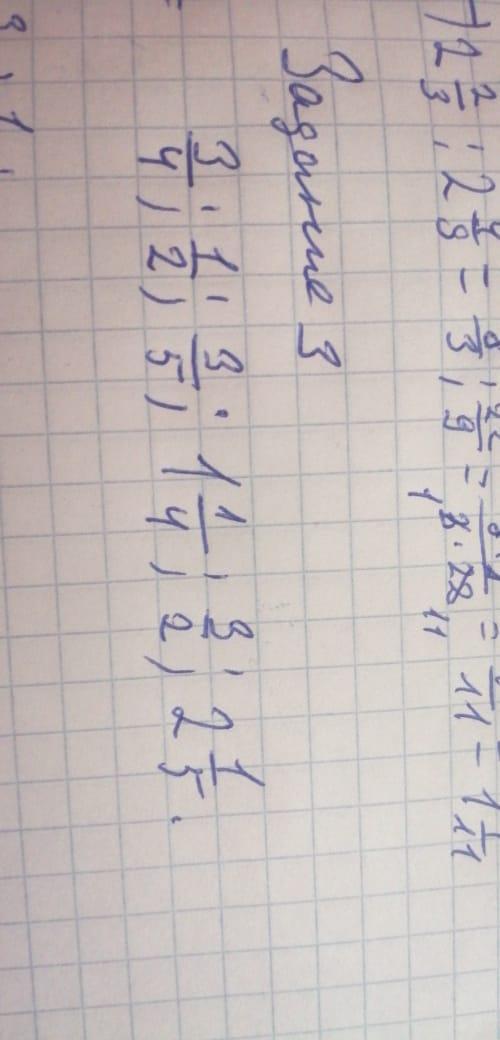 ) 2 2/3 : 2 4/9 = 8/3 : 22/9 = = 11 = 1 1/11
Задание 3
3/4 ; 1/2 ; 3/5 ; 1 1/4 ; 3/2 ; 2 1/5 .